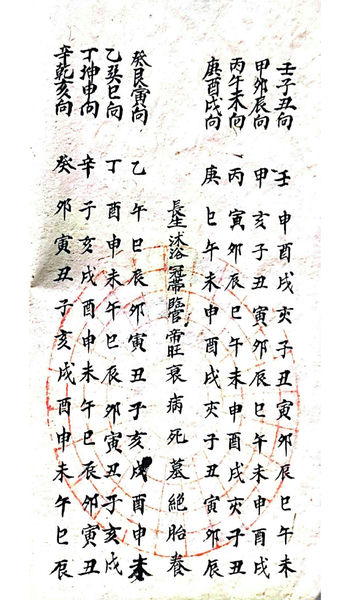 壬子丑向
甲卯辰向
丙午未向
庚酉戌向
癸艮寅向
乙巽巳向
丁坤申向
辛乾亥向
壬申酉戌亥子丑寅卯辰巳午未
甲亥子丑寅卯辰巳午未申酉戌
丙寅卯辰巳午未申酉戌亥子丑
庚巳午未申酉戌亥子丑寅卯辰
長生沐浴冠帶臨官帝旺衰病死墓絕胎養
乙午巳辰卯寅丑子亥戌酉申未
丁酉申未午巳辰卯寅丑子亥戌
辛子亥戌酉申未午巳辰卯寅丑
癸卯寅丑子亥戌酉申未午巳辰